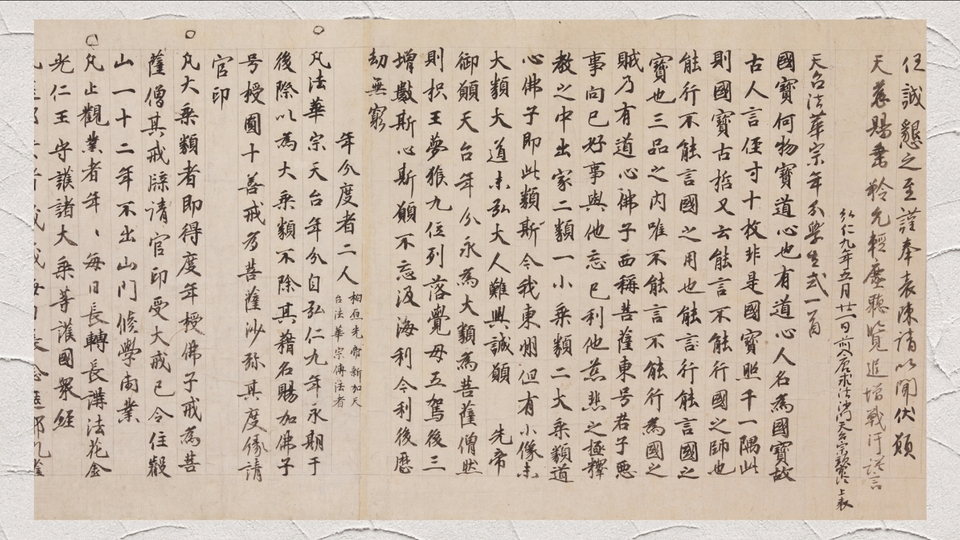 任誠懇之至謹奉表陳請以聞伏願
天慈賜垂矜允輕塵聽覧追增戰汗謹言
弘仁九年五月廿一日前入唐求法沙門天台宗最澄上表
天台法華宗年分學生式一首
國寶何物寶道心也有道心人名為國寶故
古人言徑寸十枚非是國寶照千一隅此
則國寶古哲又云能言不能行國之師也
能行不能言國之用也能行能言國之
寶也三品之内唯不能言不能行為國之
賊乃有道心佛子西稱菩薩東号君子悪
事向己好事與他忘己利他慈悲之極釋
教之中出家二類一小乘類二大乘類道
心佛子即此類斯今我東州但有小像未
大類大道未弘大人難興誠願 先帝
御願天台年分永為大類為菩薩僧然
則枳王夢猴九位列落覺母五駕後三
增數斯心斯願不忘汲海利今利後歷
劫無窮
年分度者二人 柏原先帝新加天
台法華宗傳法者
凡法華宗天台年分自弘仁九年永期于
後際以為大乘類不除其籍名賜加佛子
号授圓十善戒為菩薩沙弥其度縁請
官印
凡大乘類者即得度年授佛子戒為菩
薩僧其戒牒請官印受大戒已令住叡
山一十二年不出山門修學兩業
凡止觀業者年〻毎日長轉長講法花金
光仁王守護諸大乘等護國衆經